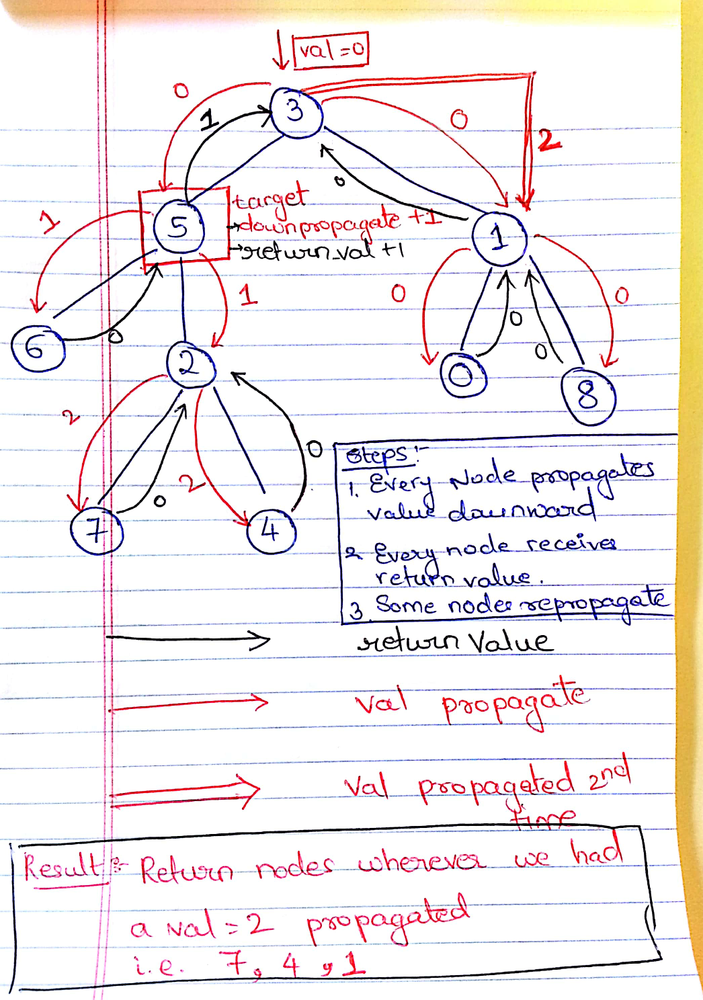 val=0
0
1
3
0
2
0
1
5
target
→downpropagate +1
→return val+1
1
1
0
0
0
0
0
6
2
0
8
2
0
2
0
7
4
Steps:-
1. Every Node propagates
value downward
2 Every node receives
return value.
3 Some nodes repropagate
return Value
val propagate
val propagated 2nd
time
Result:- Return nodes wherever we had
a val=2 propagated
i.e. 7, 4, 1